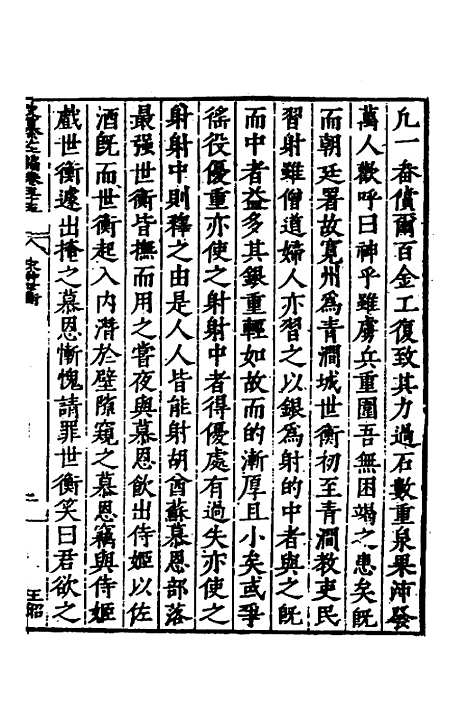 凡一畚償爾百金工復致其力過石數重泉果沛發
萬人歡呼曰神乎雖虜兵重圍吾無困竭之患矣既
而朝廷署故寛州爲青澗城世衡初至青澗教吏民
習射雖僧道婦人亦習之以銀爲射的中者與之既
而中者益多其銀重輕如故而的漸厚且小矣或爭
徭役優重亦使之射射中者得優處有過失亦使之
射射中則釋之由是人人皆能射胡酋蘇慕恩部落
最强世衡皆撫而用之嘗夜與慕恩飲出侍姬以佐
酒既而世衡起入内潛於壁隙窺之慕恩竊與侍姬
戲世衡遽出掩之慕恩慚愧請罪世衡笑曰君欲之